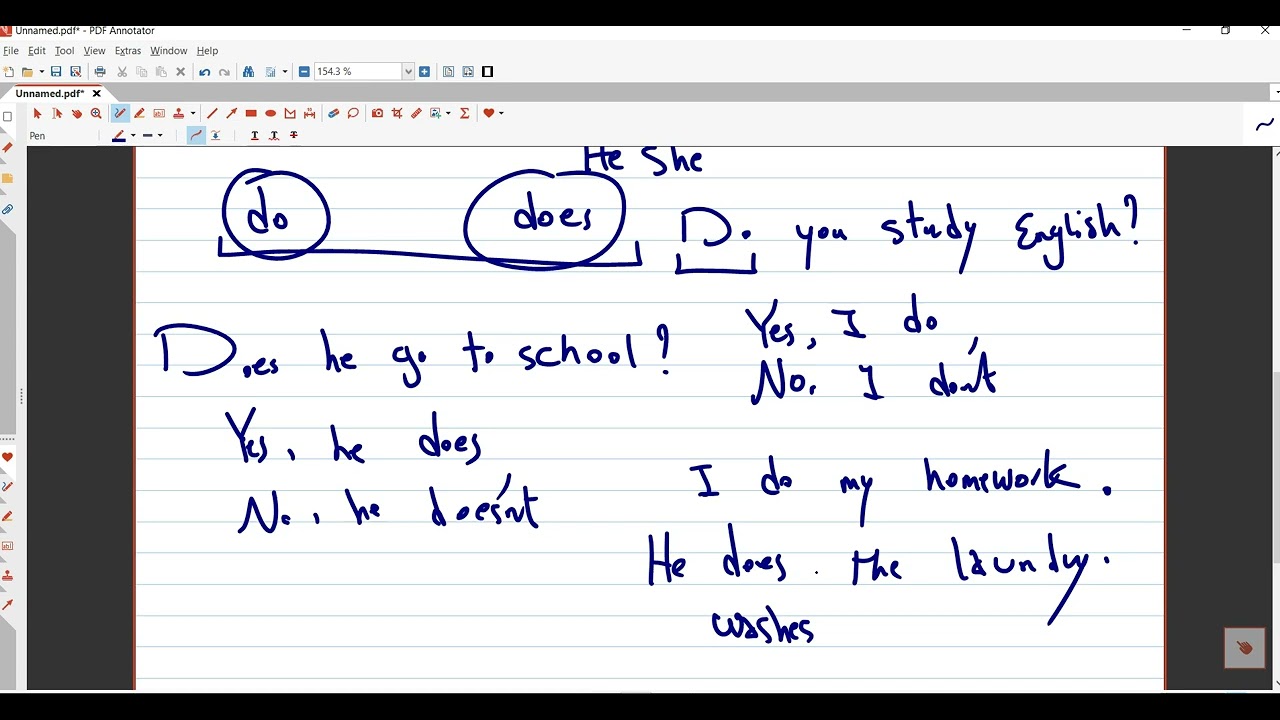 Unnamed.pdf* - PDF Annotator
File Edit Tool View Extras Window Help
154.3 %
Unnamed.pdf*
Pen
He She
do does
Do you study English?
Does he go to school?
Yes, he does
No, he doesn't
Yes, I do
No. I don't
I do my homework.
He does. the laundry.
washes